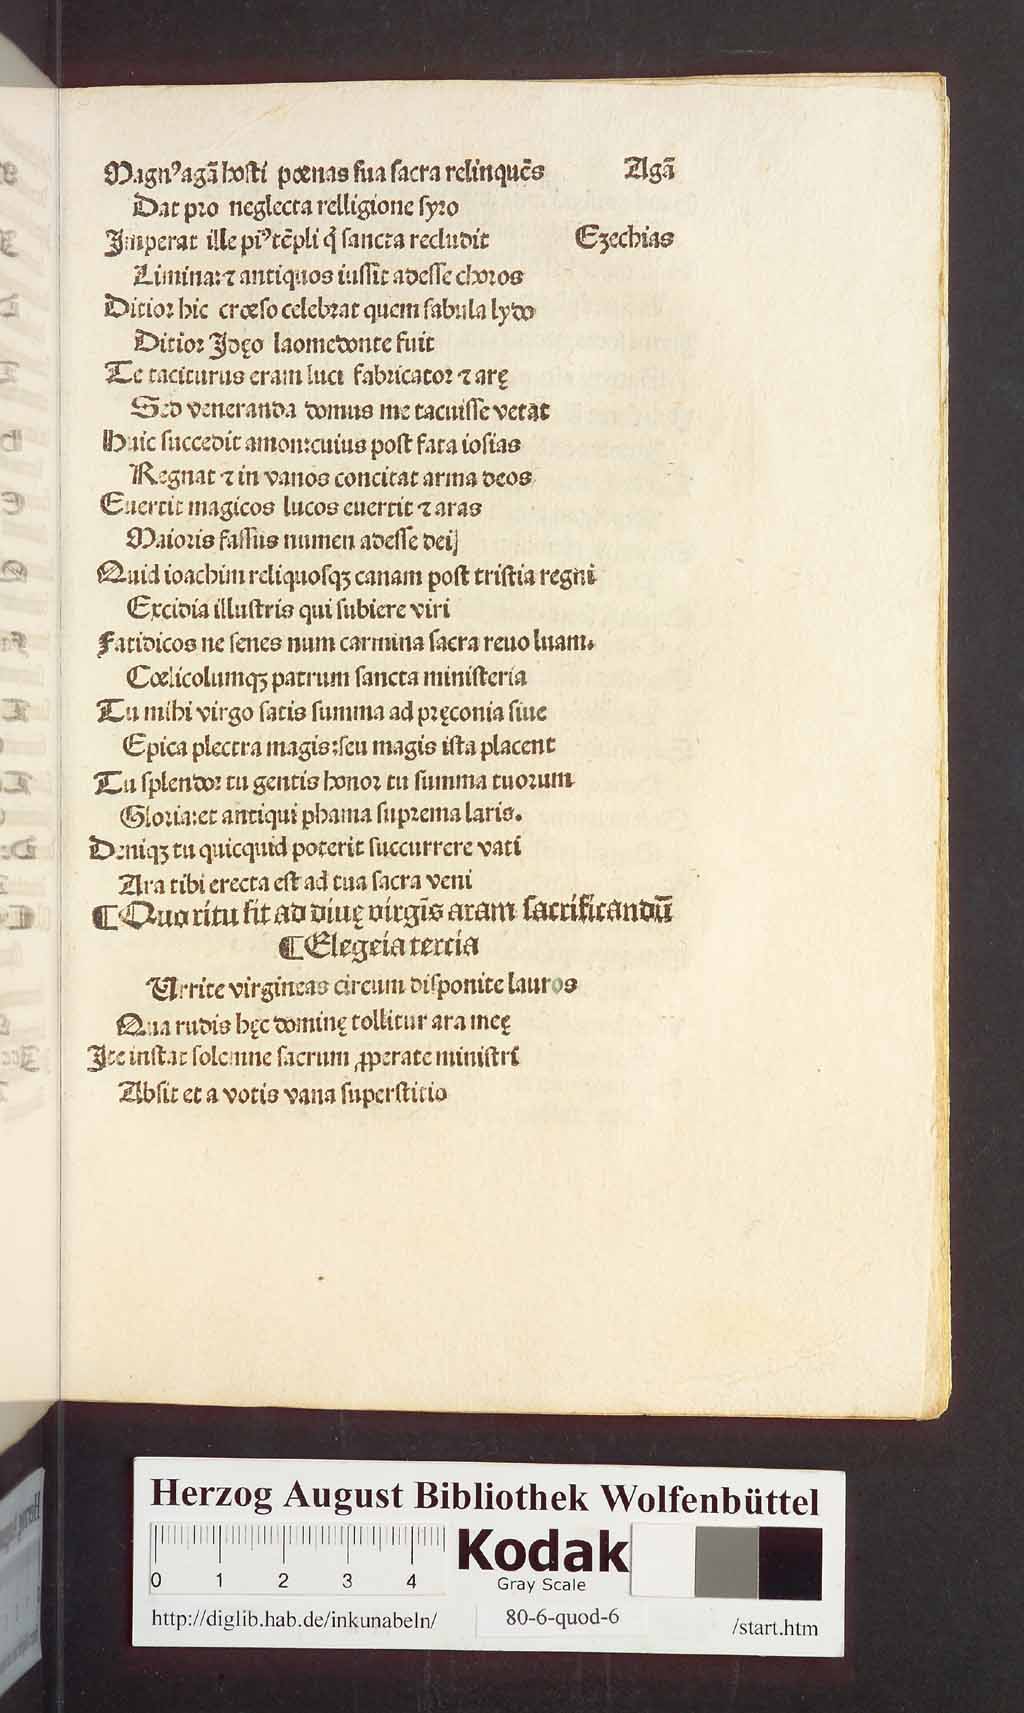 Magnꝰ agã hosti pœnas sua sacra relinquẽs Agã
Dat pro neglecta relligione syro
Imperat ille piꝰ tẽpli q̇ sancta recludit Ezechias
Limina: ⁊ antiquos iussit adesse choros
Ditior hic crœso celebrat quem fabula lydo
Ditior Idęo laomedonte fuit
Te taciturus eram luci fabricator ⁊ arę
Sed veneranda domus me tacuisse vetat
Huic succedit amon: cuius post fata iosias
Regnat ⁊ in vanos concitat arma deos
Euertit magicos lucos euertit ⁊ aras
Maioris fassus numen adesse deij
Quid ioachim reliquosqꝫ canam post tristia regni
Excidia illustris qui subiere viri
Fatidicos ne senes num carmina sacra reuo luam.
Cœlicolumqꝫ patrum sancta ministeria
Tu mihi virgo satis summa ad pręconia siue
Epica plectra magis: seu magis ista placent
Tu splendor tu gentis honor tu summa tuorum
Gloria: et antiqui phama suprema laris.
Deniqꝫ tu quicquid poterit succurrere vati
Ara tibi erecta est ad tua sacra veni
¶ Quo ritu sit ad diuę virgĩs aram sacrificandũ
¶ Elegeia tertia
Urrite virgineas circum disponite lauros
Qua rudis hęc dominę tollitur ara meę
Ite instat solemne sacrum ꝓperate ministri
Absit et a votis vana superstitio
Herzog August Bibliothek Wolfenbüttel
0 1 2 3 4
Kodak
Gray Scale
http://diglib.hab.de/inkunabeln/ 80-6-quod-6 /start.htm